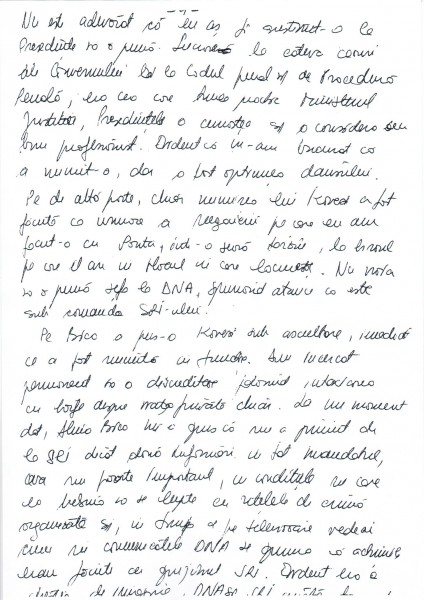 - 7 -
Nu este adevărat că eu aș fi instruit-o la
Președinte să o pună. Lucrase la câteva
ale Guvernului la Codul penal și de Procedură
Penală, era cea care
Justiției, Președintele o cunoștea și o considera un
bun profesionist. Evident că m-am bucurat că
a numit-o, dar a fost opțiunea dânsului.
Pe de altă parte, chiar numirea lui Kovesi a fost
făcută ca urmare a negocierii pe care eu am
făcut-o cu Ponta, într-o seară târziu, la biroul
pe care îl am în blocul în care locuiesc. Nu voia
să o pună șefa la DNA, spunând atunci că este
sub comanda SRI-ului.
Pe Bica a pus-o Kovesi sub ascultare, imediat
ce a fost numită în funcție. Au încercat
permanent să o discrediteze folosind intoxicarea
cu bârfe despre viața privată chiar. La un moment
dat, Alina Bica mi-a spus că nu a primit de
la SRI decât două informări în tot mandatul,
ceva nu foarte important, în condițiile în care
ea trebuia să se lupte cu rețelele de crimă
organizată și, în timp ce pe televizoare vedeai
cum în comunicatele DNA se spunea că acțiunile
erau făcute cu sprijinul SRI. Evident era o
DNA și SRI